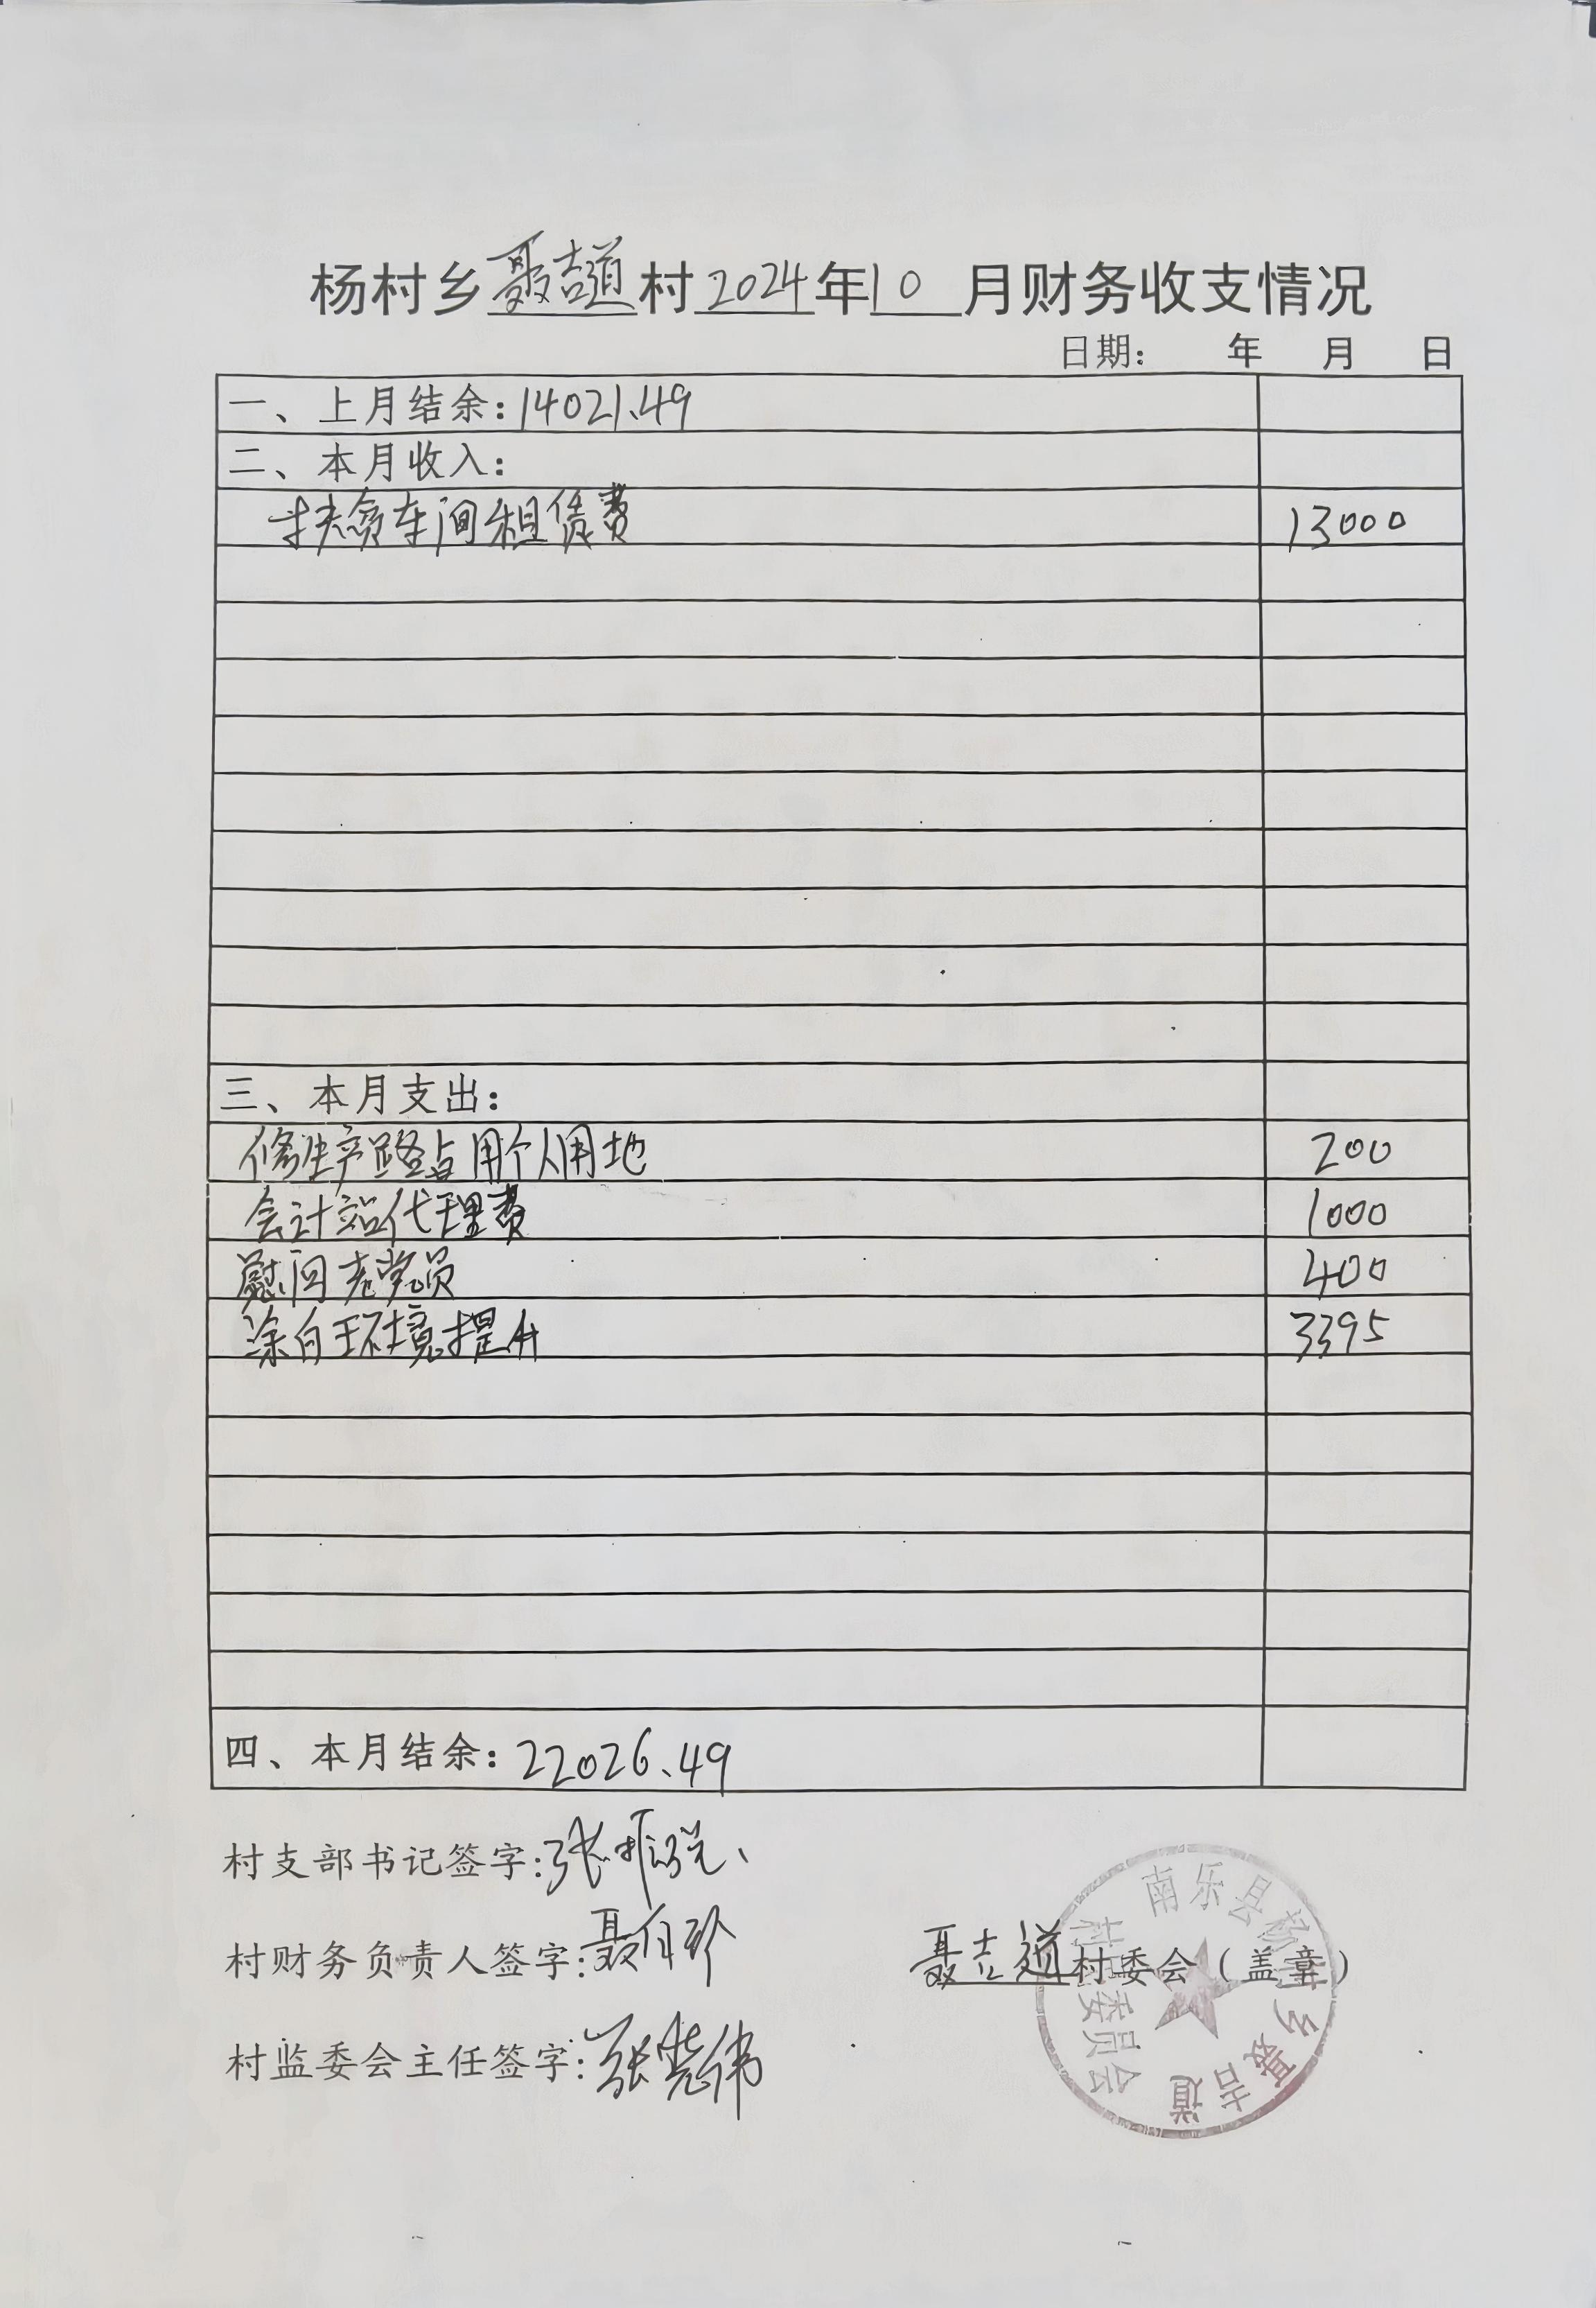 杨村乡聂吉道村2024年10月财务收支情况
日期： 年 月 日
一、上月结余：14021.49
二、本月收入：
扶贫车间租赁费 13000
三、本月支出：
修生产路占用个人用地 200
会计站代理费 1000
慰问老党员 400
涂白环境提升 3395
四、本月结余：22026.49
村支部书记签字：张
村财务负责人签字：聂自
聂吉道村委会（盖章）
村监委会主任签字：张伟
南乐县杨村乡聂吉道村民委员会